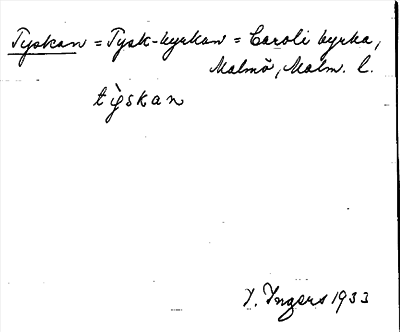 Tyskan = Tysk-kyrkan = Caroli kyrka,
Malmö, Malm. l.
tỳskan
I. Ingers 1933